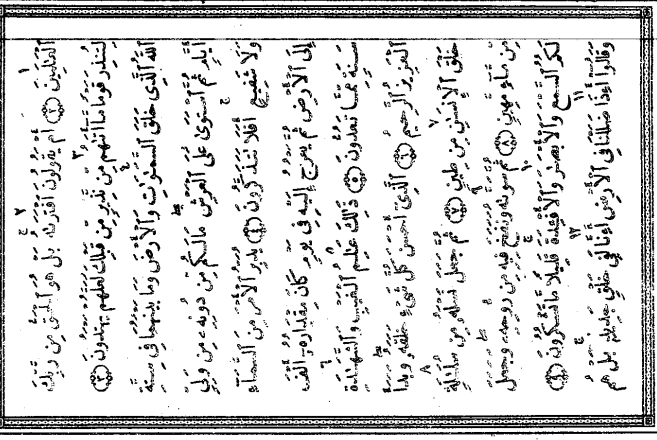 ٱلْعَٰلَمِينَ ٢ أَمْ يَقُولُونَ ٱفْتَرَىٰهُ بَلْ هُوَ ٱلْحَقُّ مِن رَّبِّكَ
لِتُنذِرَ قَوْمًا مَّآ أَتَىٰهُم مِّن نَّذِيرٍ مِّن قَبْلِكَ لَعَلَّهُمْ يَهْتَدُونَ ٣
ٱللَّهُ ٱلَّذِى خَلَقَ ٱلسَّمَٰوَٰتِ وَٱلْأَرْضَ وَمَا بَيْنَهُمَا فِى سِتَّةِ
أَيَّامٍ ثُمَّ ٱسْتَوَىٰ عَلَى ٱلْعَرْشِ مَا لَكُم مِّن دُونِهِۦ مِن وَلِىٍّ
وَلَا شَفِيعٍ أَفَلَا تَتَذَكَّرُونَ ٤ يُدَبِّرُ ٱلْأَمْرَ مِنَ ٱلسَّمَآءِ
إِلَى ٱلْأَرْضِ ثُمَّ يَعْرُجُ إِلَيْهِ فِى يَوْمٍ كَانَ مِقْدَارُهُۥٓ أَلْفَ
سَنَةٍ مِّمَّا تَعُدُّونَ ٥ ذَٰلِكَ عَٰلِمُ ٱلْغَيْبِ وَٱلشَّهَٰدَةِ
ٱلْعَزِيزُ ٱلرَّحِيمُ ٦ ٱلَّذِىٓ أَحْسَنَ كُلَّ شَىْءٍ خَلَقَهُۥ وَبَدَأَ
خَلْقَ ٱلْإِنسَٰنِ مِن طِينٍ ٧ ثُمَّ جَعَلَ نَسْلَهُۥ مِن سُلَٰلَةٍ
مِّن مَّآءٍ مَّهِينٍ ٨ ثُمَّ سَوَّىٰهُ وَنَفَخَ فِيهِ مِن رُّوحِهِۦ وَجَعَلَ
لَكُمُ ٱلسَّمْعَ وَٱلْأَبْصَٰرَ وَٱلْأَفْـِٔدَةَ قَلِيلًا مَّا تَشْكُرُونَ ٩
وَقَالُوٓا۟ أَءِذَا ضَلَلْنَا فِى ٱلْأَرْضِ أَءِنَّا لَفِى خَلْقٍ جَدِيدٍ بَلْ هُم